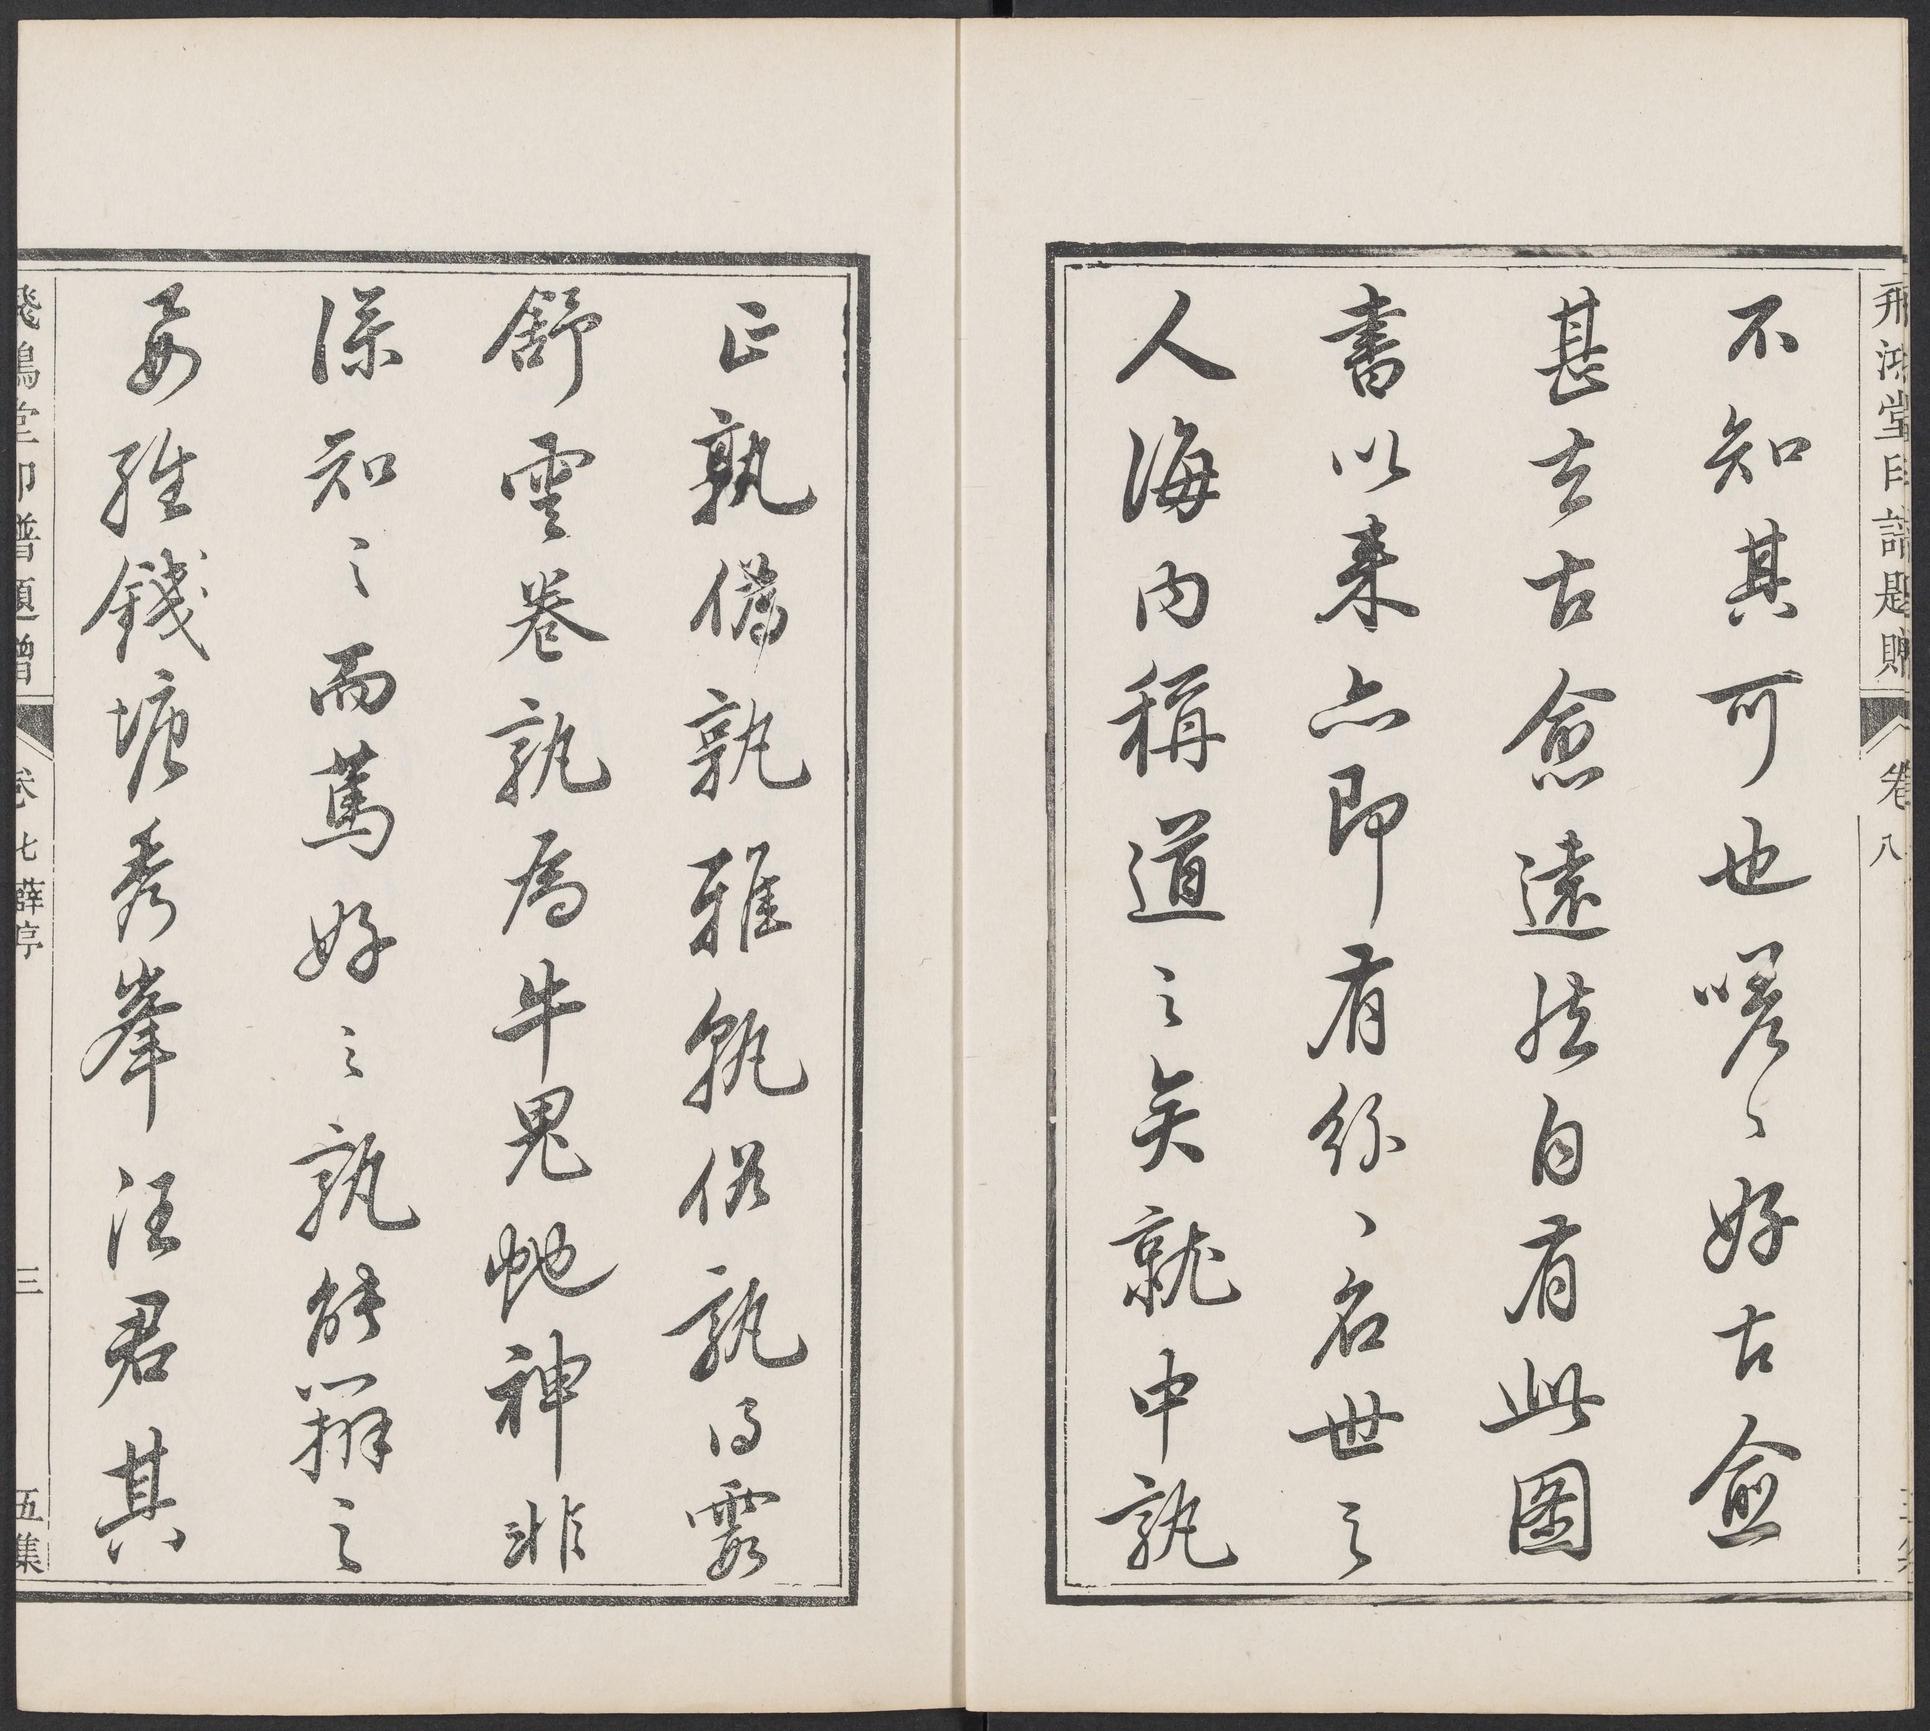 飛鴻堂印譜題贈 卷八
不知其可也嘐〻好古愈
甚去古愈遠然自有此圖
書以来亦即有紛〻名世之
人海内稱道之矣就中孰
正孰僞孰雅孰俗孰得霞
舒雲卷孰為牛鬼虵神非
深知之而篤好之孰能辨之
要維錢塘秀峯汪君其
飛鴻堂印譜題贈 卷七 薛亭 三 五集